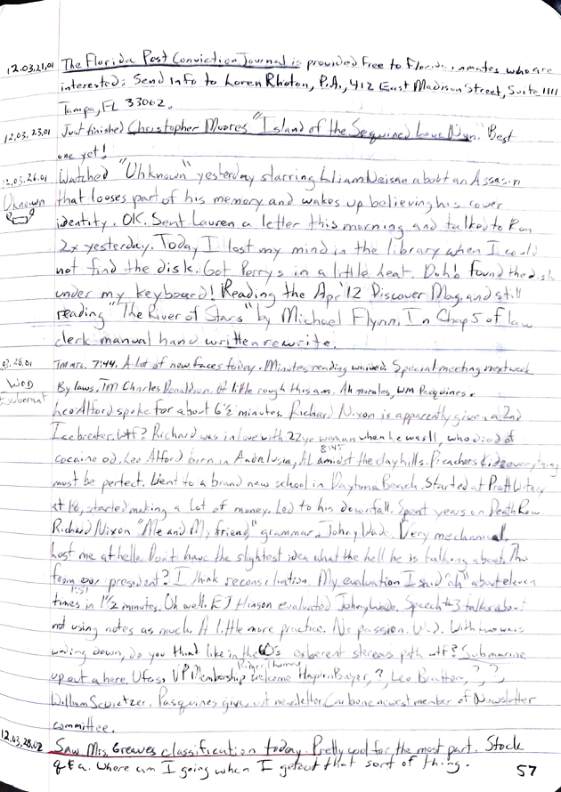 12.03.21.01 The Florida Post Conviction Journal is provided free to Florida inmates who are
interested: Send Info to Loren Rhoton, P.A., 412 East Madison Street, Suite 1111
Tampa, FL 33602.
12.03.23.01 Just finished Christopher Moores "Island of the Sequined Love Nun. Best
one yet!
12.03.26.01 Watched "Unknown" yesterday starring Lliam Neison about an Assassin
Uknown that looses part of his memory and wakes up believing his cover
identity. OK. Sent Lauren a letter this morning and talked to Ron
2x yesterday. Today I lost my mind in the library when I could
not find the disk. Got Perrys in a little heat. Doh! Found the disk
under my keyboard! Reading the Apr '12 Discover Mag. and still
reading "The River of Stars" by Michael Flynn. In Chap 5 of law
clerk manual hand written rewrite.
.28.01 7:44. A lot of new faces today. Minutes reading waived. Special meeting next week
WED By laws. TM Charles Donaldson. A little rough this a.m. Ah WM Pasquines.
Leo Alford spoke for about 6½ minutes. Richard Nixon is apparently given a 2nd
Icebreaker. WTF? Richard was in love with 22 yo woman when he was 11, who died of
8:45
cocaine od. Leo Alford born in Andalusia, AL amidst the clay hills. Preachers kid everything
must be perfect. Went to a brand new school in Daytona Beach. Started at Pratt
at 16, started making a lot of money. Led to his downfall. Spent years on Death Row.
Richard Nixon "Me and My friend" grammar. Johny Wade. Very mechanical.
Lost me at hello. Don't have the slightest idea what the hell he is talking about.
from our president? I think reconciliation. My evaluation I said "ah" about eleven
1:51
times in 1½ minutes. Oh well. EJ Hinson evaluated Johny Wade. Speech #3 talks about
not using notes as much. A little more practice. No passion. With two wars
winding down, do you think like in the 60's path wtf? Submarine
up out a here. Ufos. VP Membership welcome Hayden Boyer, ? Leo Britton, ?, ?,
William Pasquines gives out newsletter. newest member of Newsletter
committee.
12.03.28.02 Saw Mrs. Greaves classification today. Pretty cool for the most part. Stock
q & a. Where am I going when I get out that sort of thing.
57